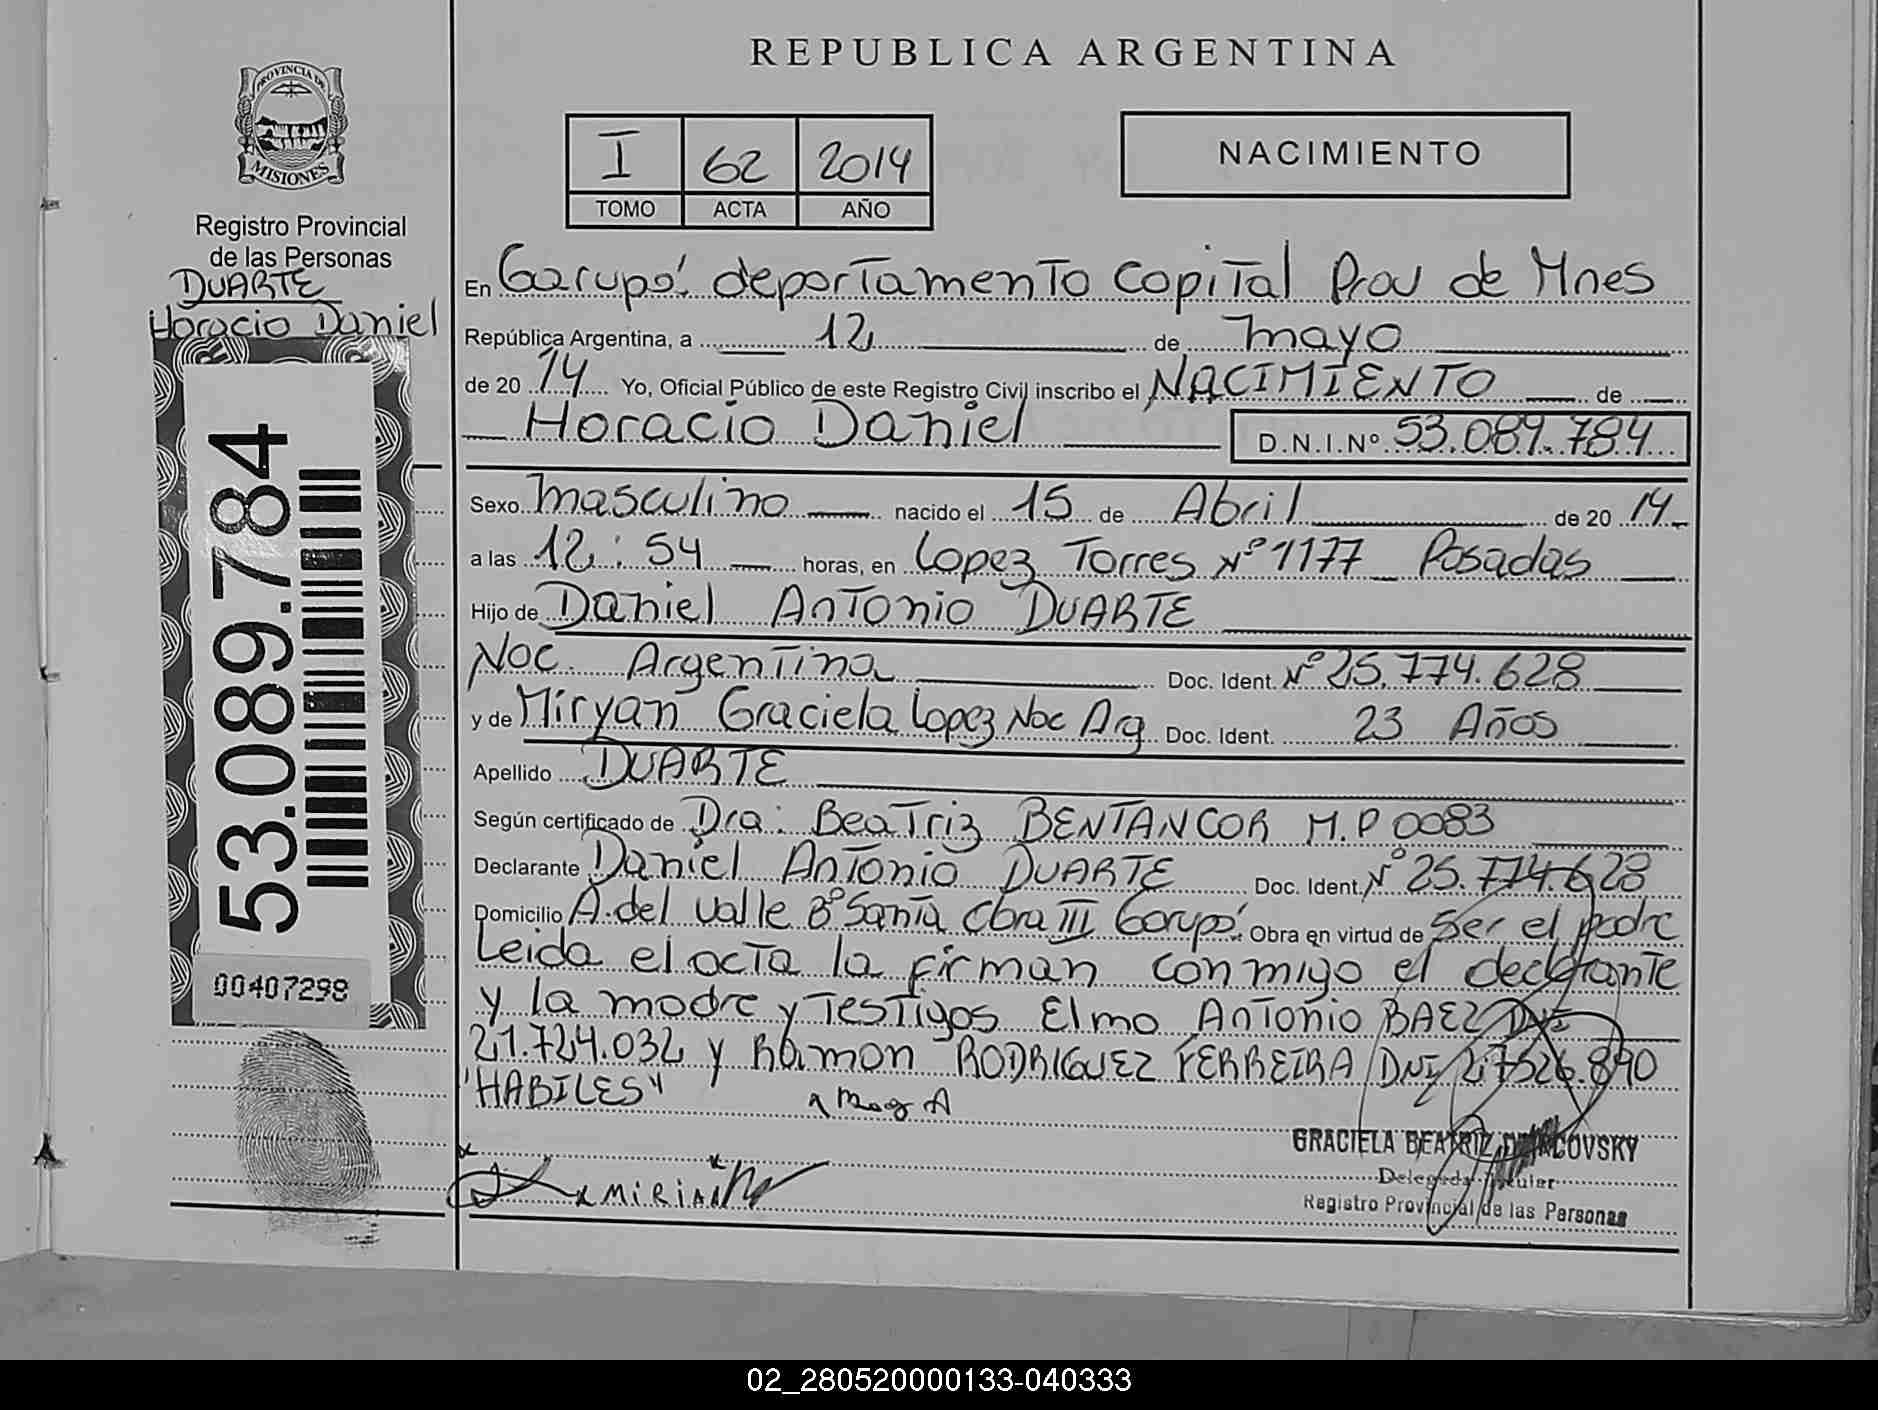 REPUBLICA ARGENTINA
PROVINCIA DE
MISIONES
Registro Provincial
de las Personas
DUARTE
Horacio Daniel
I 62 2014
TOMO ACTA AÑO
NACIMIENTO
En Garupá departamento Capital Prov de Mnes
República Argentina, a 12 de mayo
de 2014 Yo, Oficial Público de este Registro Civil inscribo el NACIMIENTO de
Horacio Daniel D.N.I.Nº 53.089.784
Sexo masculino nacido el 15 de Abril de 2014
a las 12:54 horas, en Lopez Torres Nº 1177 Posadas
Hijo de Daniel Antonio DUARTE
Nac. Argentina Doc. Ident. Nº 25.774.628
y de Miryan Graciela Lopez Nac Arg Doc. Ident. 23 Años
Apellido DUARTE
Según certificado de Dra. Beatriz BENTANCOR M.P 0083
Declarante Daniel Antonio DUARTE Doc. Ident. Nº 25.774.628
Domicilio A. del Valle Bº Santa Clara III Garupá. Obra en virtud de Ser el padre
Leida el acta la firman conmigo el declarante
y la madre y Testigos Elmo Antonio BAEZ DNI
21.724.032 y Ramon RODRIGUEZ FERREIRA DNI 27526.890
"HABILES"
53.089.784
00407298
x MIRIAN
GRACIELA BEATRIZ
Delegada Titular
Registro Provincial de las Personas
02_280520000133-040333